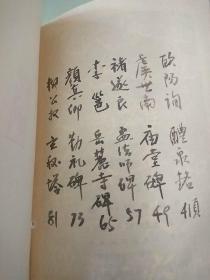 欧阳询 醴泉铭 41頁
虞世南 庙堂碑 49
褚遂良 孟法师碑 57
李邕 岳麓寺碑 65
颜真卿 勤礼碑 73
柳公权 玄秘塔 81